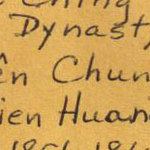 Ching
Dynasty,
ên Chun
ien Huan